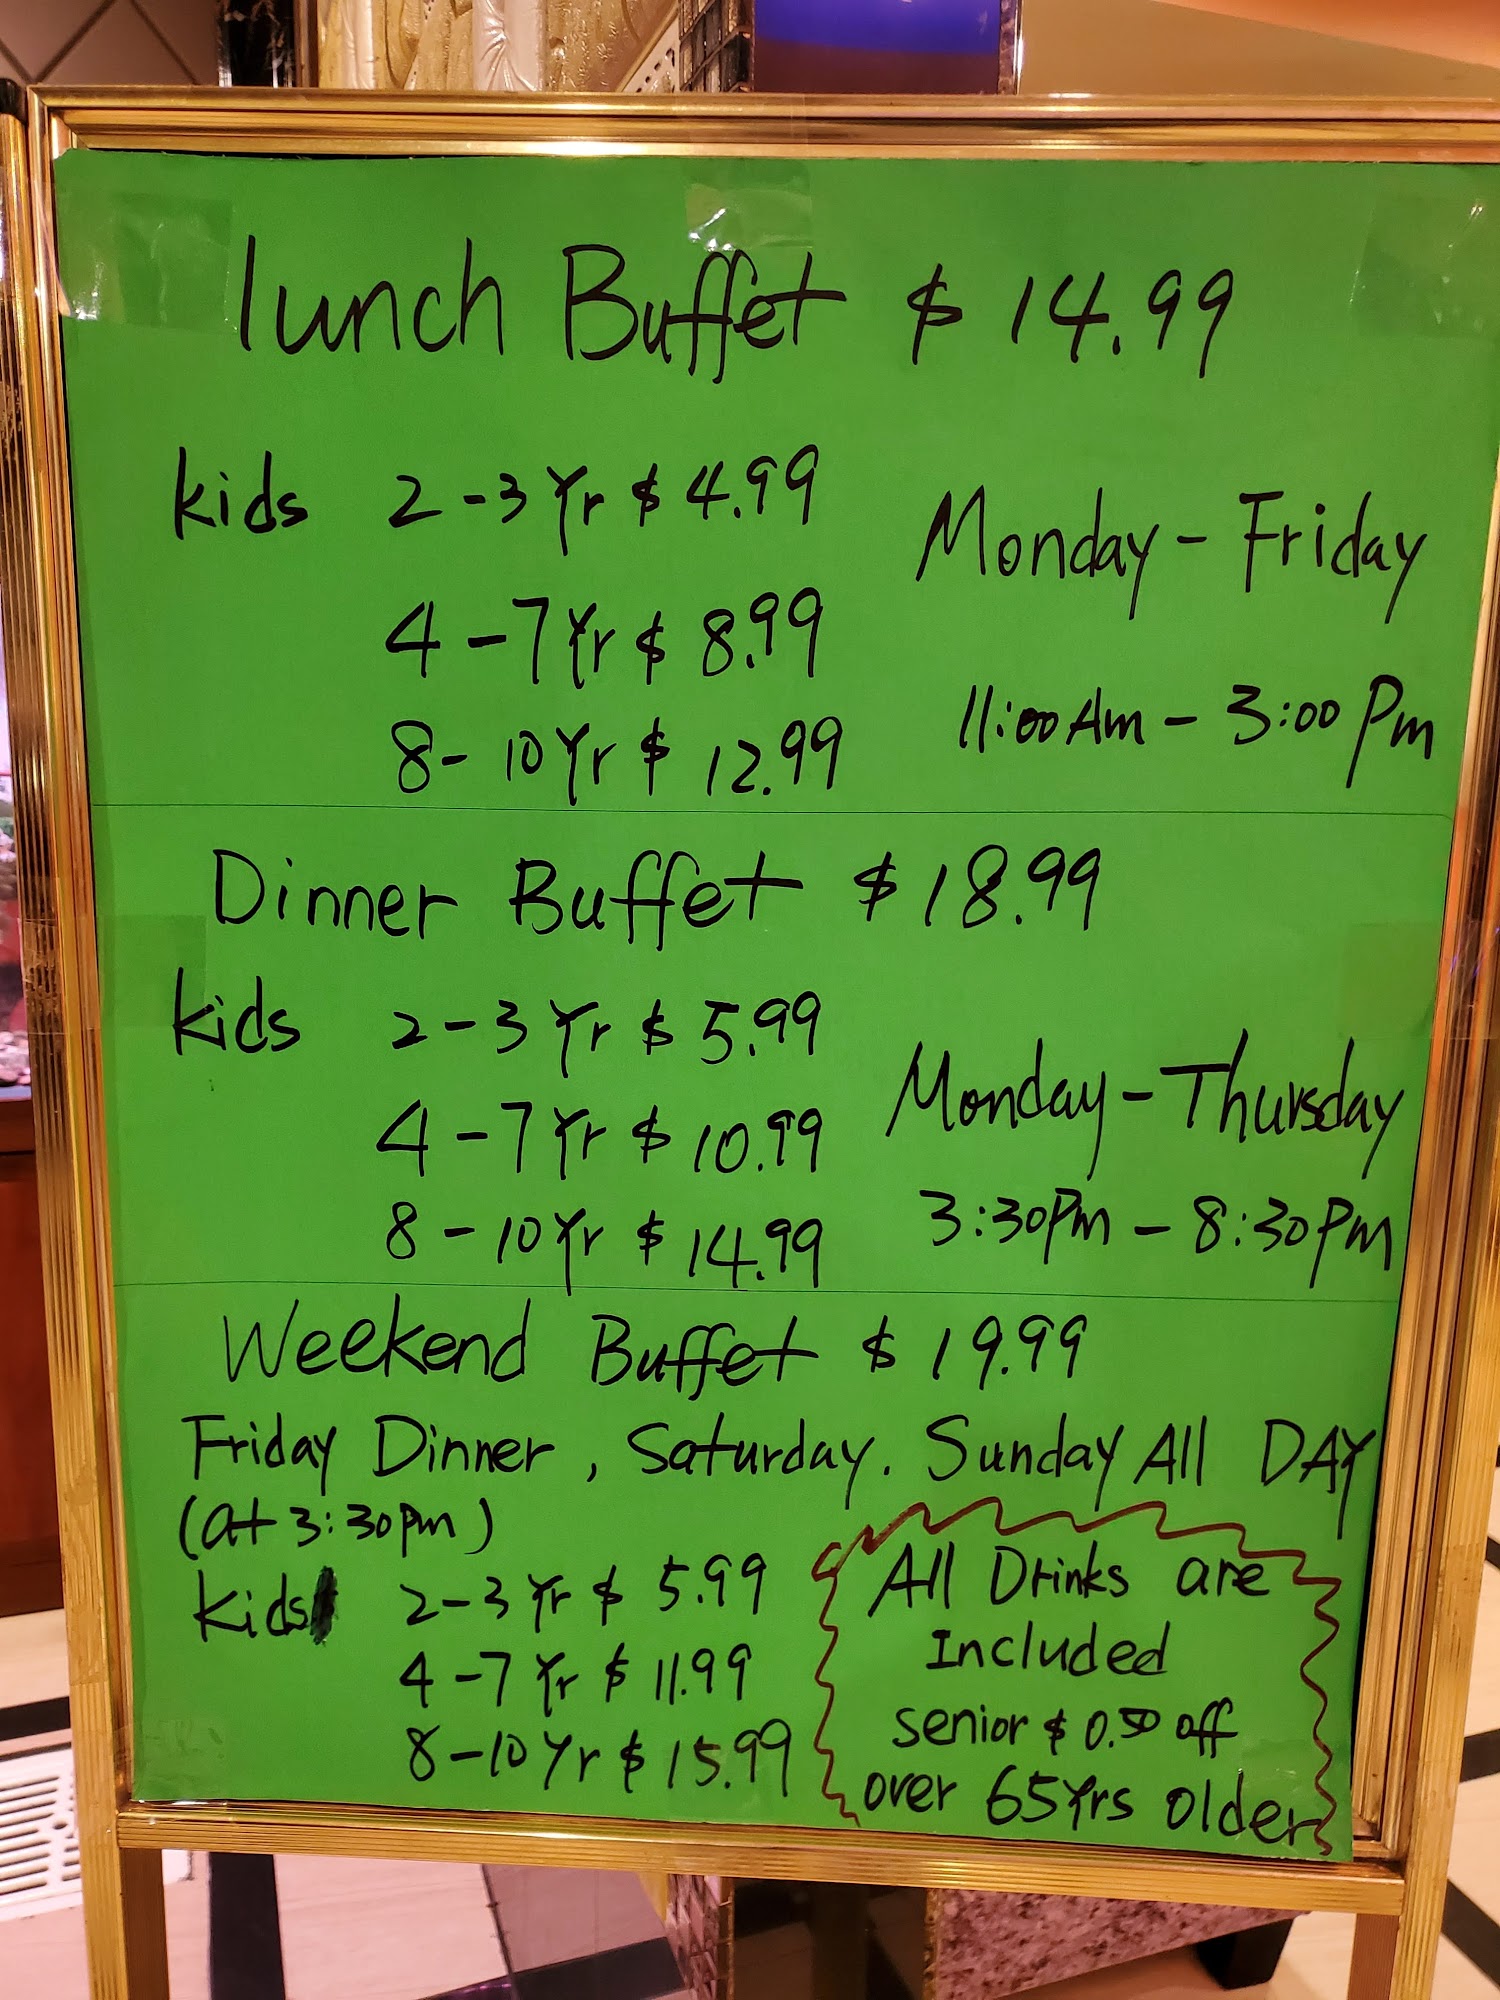 lunch Buffet $ 14.99
kids 2-3 Yr $ 4.99
4-7 Yr $ 8.99
8-10 Yr $ 12.99
Monday - Friday
11:00 Am - 3:00 Pm
Dinner Buffet $ 18.99
kids 2-3 Yr $ 5.99
4-7 Yr $ 10.99
8-10 Yr $ 14.99
Monday - Thursday
3:30 Pm - 8:30 Pm
Weekend Buffet $ 19.99
Friday Dinner, Saturday. Sunday All DAY
(at 3:30 pm)
kids 2-3 Yr $ 5.99
4-7 Yr $ 11.99
8-10 Yr $ 15.99
All Drinks are
Included
senior $ 0.50 off
over 65 Yrs older